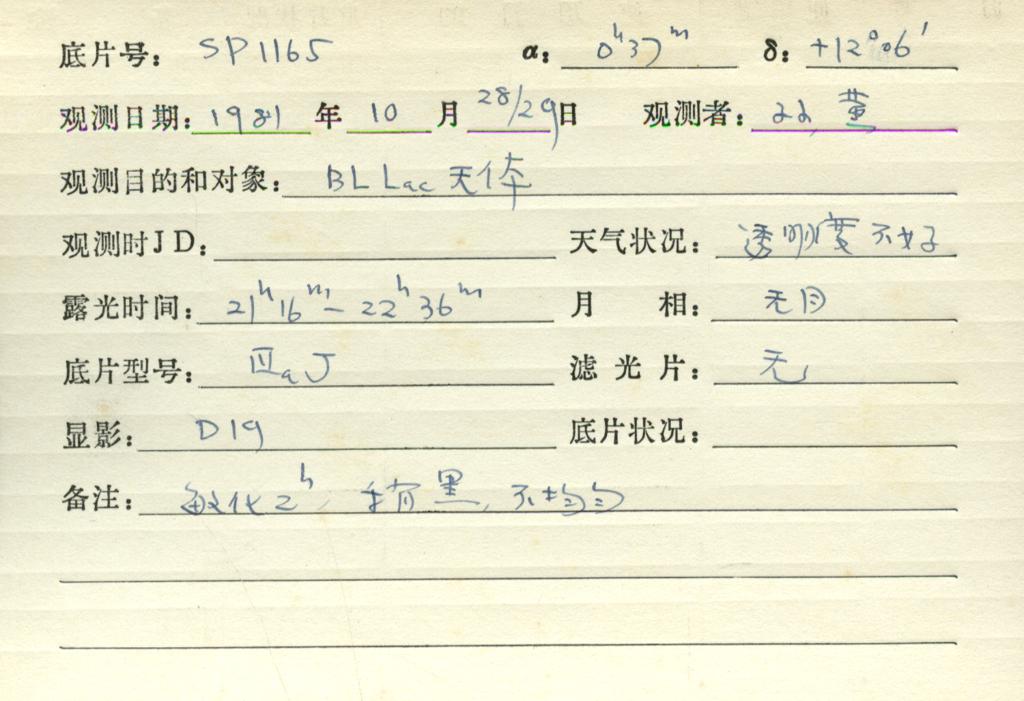 底片号: SP1165 α: 0ʰ37ᵐ δ: +12°06′
观测日期: 1981 年 10 月 28/29 日 观测者:
观测目的和对象: BL Lac 天体
观测时JD: 天气状况: 透明度不好
露光时间: 21ʰ16ᵐ - 22ʰ36ᵐ 月 相: 无月
底片型号: ⅢaJ 滤光片: 无
显影: D19 底片状况:
备注: 敏化2ʰ, 稍黑, 不均匀